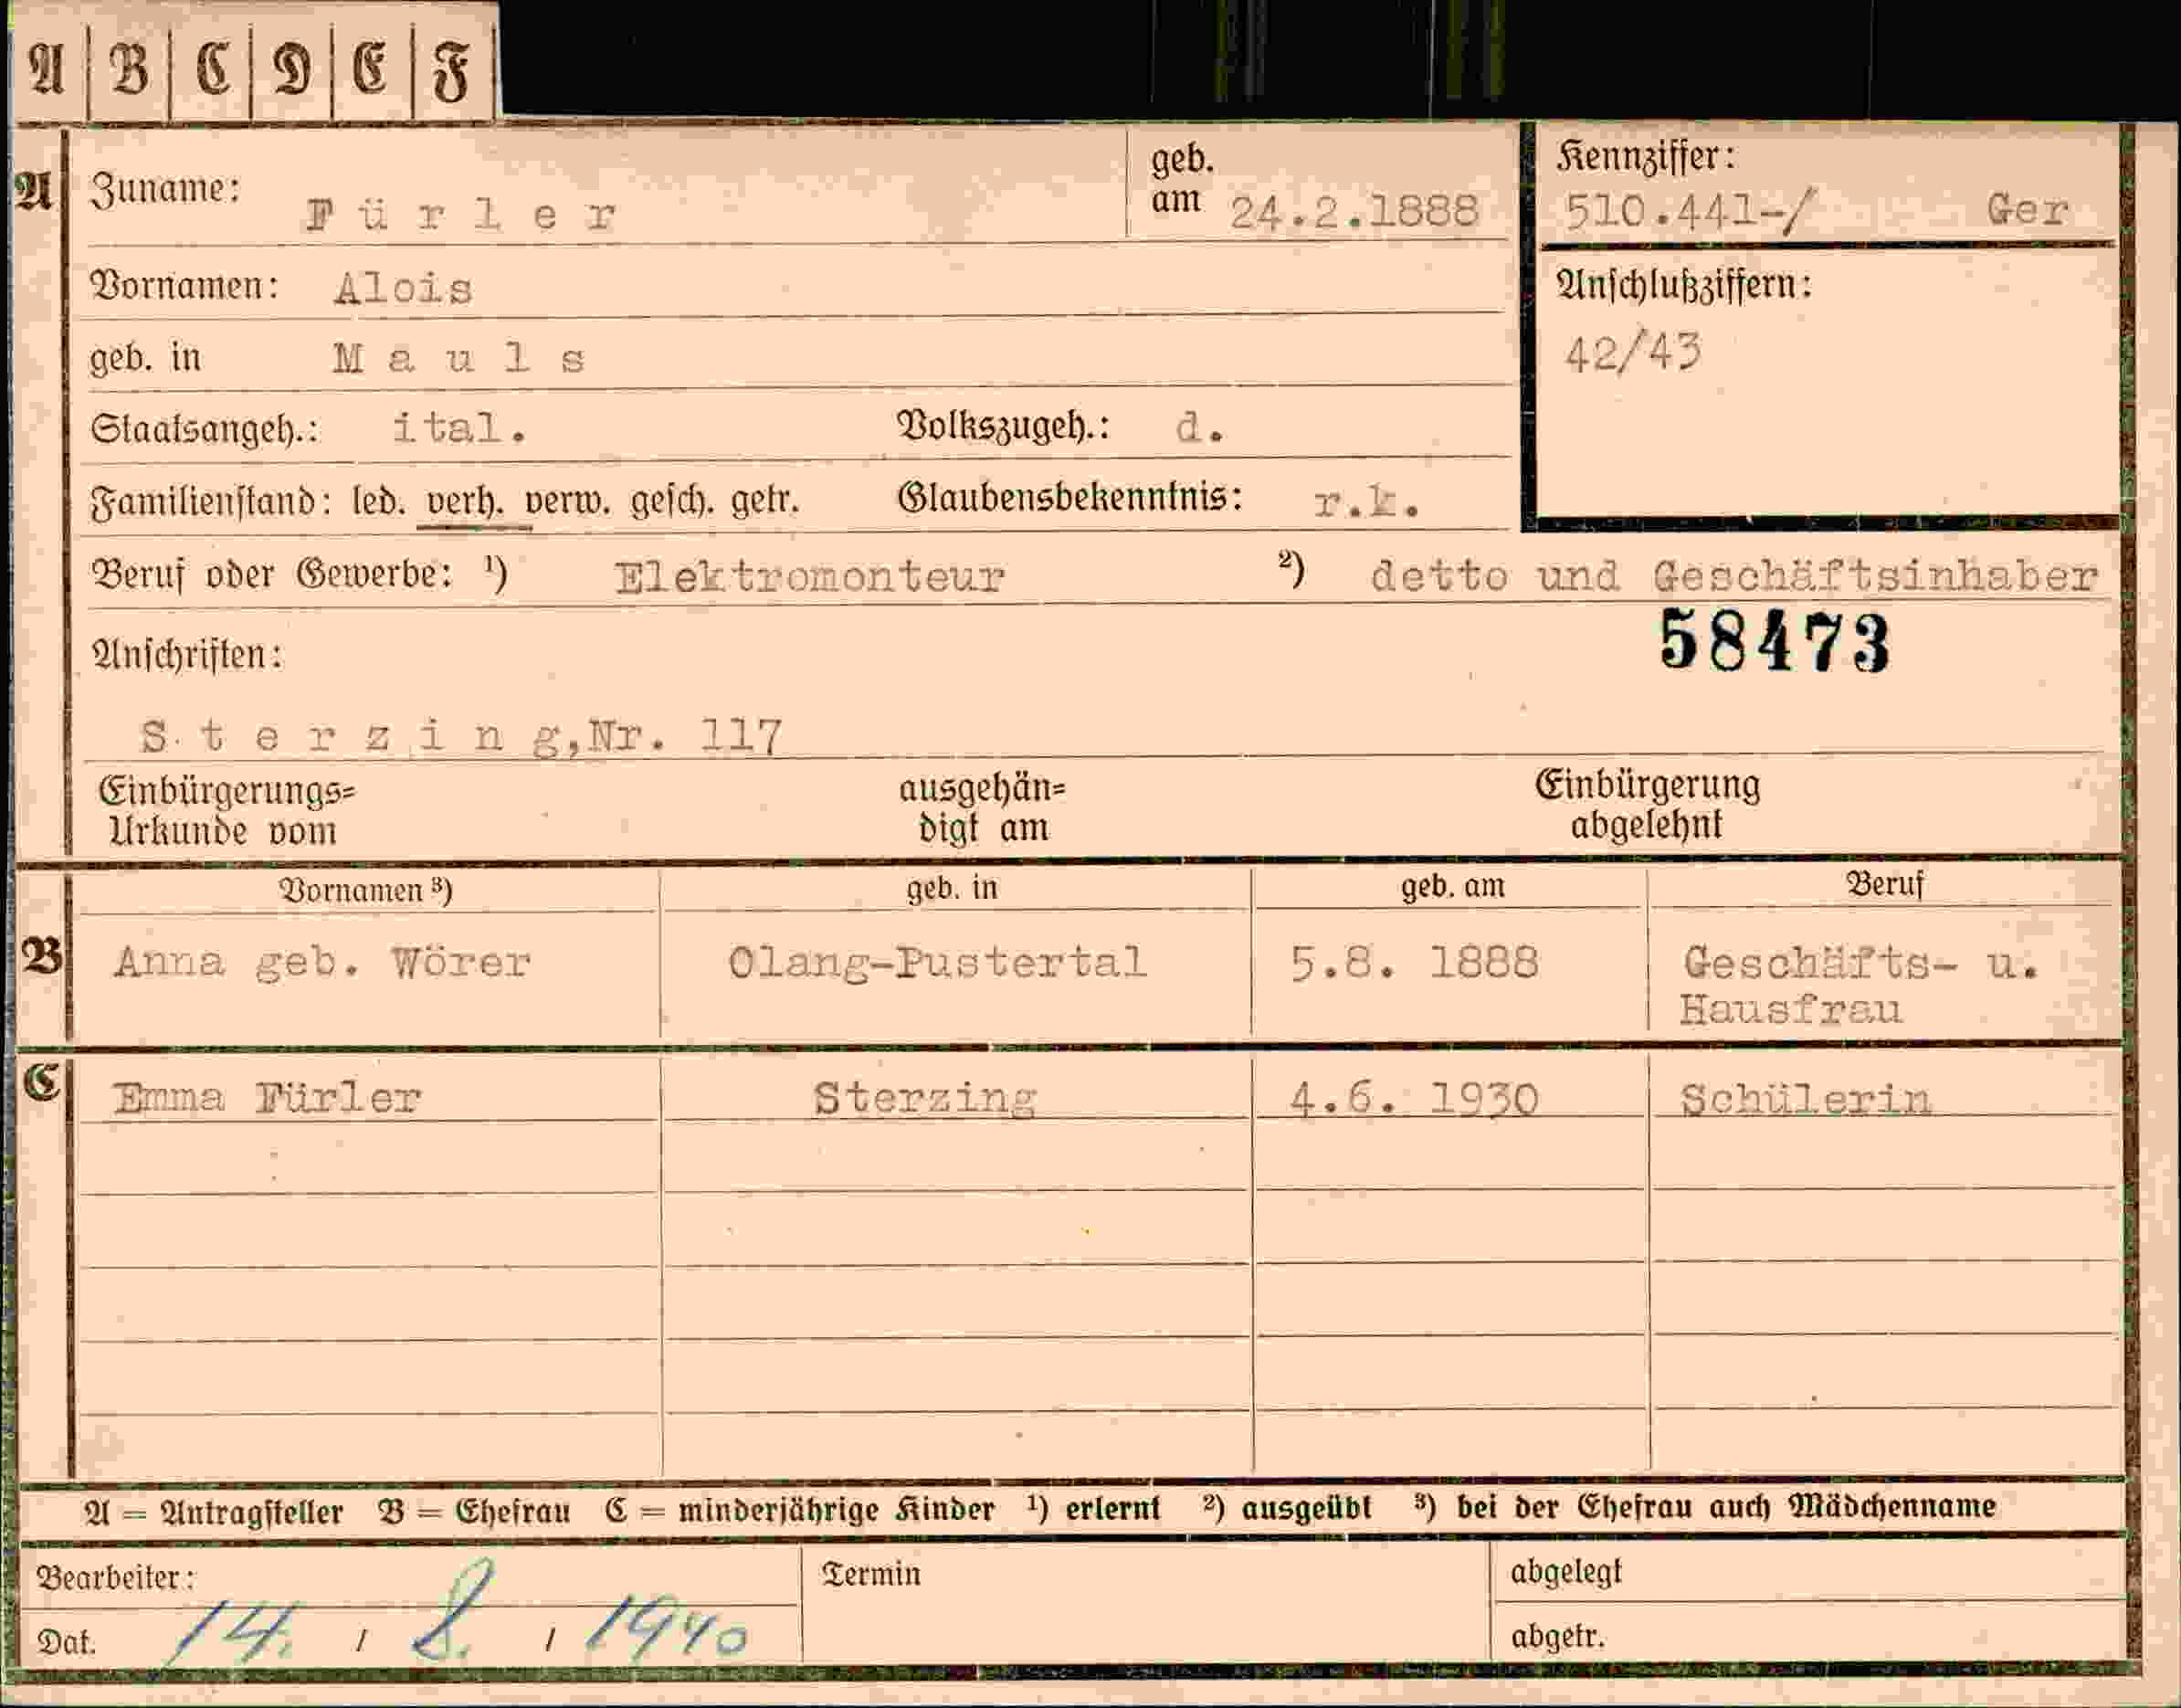 A B C D E F
A
Zuname: Fürler geb. am 24.2.1888
Kennziffer:
510.441-/ Ger
Vornamen: Alois
Anschlußziffern:
42/43
geb. in Mauls
Staatsangeh.: ital. Volkszugeh.: d.
Familienstand: led. verh. verw. gesch. getr. Glaubensbekenntnis: r.k.
Beruf oder Gewerbe: ¹) Elektromonteur ²) detto und Geschäftsinhaber
58473
Anschriften:
Sterzing, Nr. 117
Einbürgerungs= ausgehän= Einbürgerung
Urkunde vom digt am abgelehnt
Vornamen ³) geb. in geb. am Beruf
B Anna geb. Wörer Olang-Pustertal 5.8. 1888 Geschäfts- u.
Hausfrau
C Emma Fürler Sterzing 4.6. 1930 Schülerin
A = Antragsteller B = Ehefrau C = minderjährige Kinder ¹) erlernt ²) ausgeübt ³) bei der Ehefrau auch Mädchenname
Bearbeiter: Termin abgelegt
Dat. 14. / 8. / 1940 abgetr.